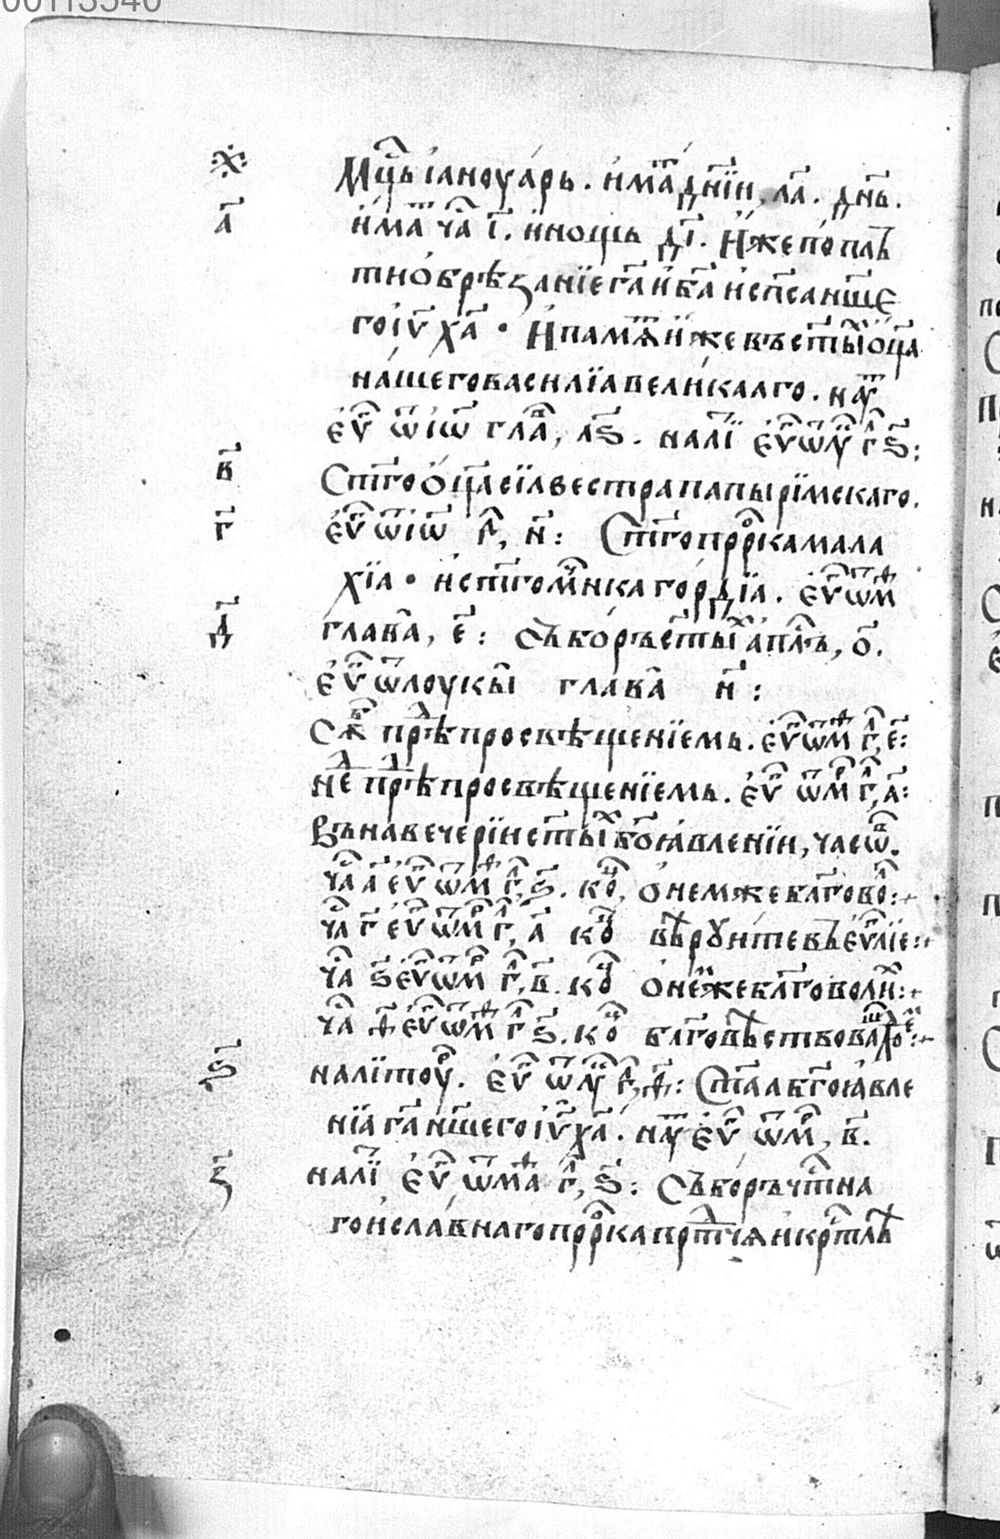 00113540
Мц҃ъ і҆аноуа́рь . и҆ма́т дн҃їи , ла҃ . дн҃ь .
а҃ и҆ма́т ча̑ і҃ . и нощъ ді҃ . И҆же по плъ
тиѻ҆брѣзанїе гл҃и и҆ б҃а и҆ сп҃са нш҃е
го і҆у҃ х҃а • И памѧ҃ и҆же въ ст҃ы ѻ҆ц҃а
на́шего васнлїа вели́кааго . на ѹ҃т
е҆ѵ҃ ѿ і҆ѡ҃ глава̑ , лѕ҃ . на лї҃ е҆ѵ҃ ѿ лѹ҃ г҃ ѕ҃ :
в҃ Ст҃го ѻ҆ц҃а сїлвестра папы ри́мскаго .
г҃ е҆ѵ҃ ѿ і҆ѡ҃ г҃ , н҃ : Ст҃го прр҃ка мала
хїа • и҆ ст҃го мч҃нка гордїа . е҆ѵ҃ ѿ м҃ѳ
д҃ глава̑ , е҃ : Съборъ ст҃ы а҆пл҃ъ , о҃ .
е҆ѵ҃ ѿ лоукы̑ глава̑ н҃ :
сѫ҃ прⷣѣ просвѣщенїемь . е҆ѵ҃ ѿ м҃ѳ г҃ , е҃ :
не҃ прⷣѣ просвѣщенїемь . е҆ѵ҃ ѿ мр҃ г҃ , а҃ :
Въ навечерїи ст҃ы бг҃оꙗвленїи , часѡ҃в .
ча̑ а҃ е҆ѵ҃ ѿ м҃ѳ г҃ , ѕ҃ . кѻ҃ , ѻ немже блг҃ово :+
ча̑ г҃ е҆ѵ҃ ѿ мр҃ г҃ , а҃ кѻ҃ вѣрꙋите въ е҆ѵ҃лїе :+
ча̑ ѕ҃ е҆ѵ҃ ѿ мр҃ г҃ , в҃ . кѻ҃ ѻ не́мже блг҃оволи :+
ча̑ ѳ҃ е҆ѵ҃ ѿ м҃ѳ г҃ ѕ҃ . кѻ҃ блг҃овѣствова
ѕ҃ на лїтоу҃ . е҆ѵ҃ ѿ лѹ҃ г҃ , ѳ҃ : Ст҃аа бг҃оꙗвле
нїа г҃а нш҃его і҆у҃ х҃а . на ѹ҃т е҆ѵ҃ ѿ мр҃ , в҃ .
з҃ на лї҃ е҆ѵ҃ ѿ ма҃ѳ г҃ , ѕ҃ : Съборъ чт҃на
го и славнаго прр҃ка прⷣтчѧ и҆ крт҃лѣ